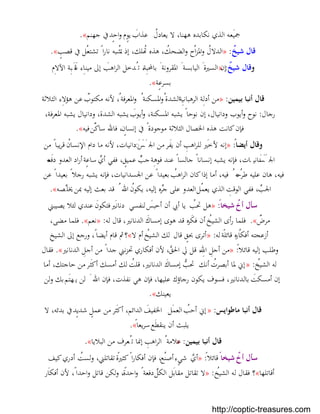 جميعه الذي نكابده ههنا، لا يعادل عذاب يوم واحد في جهنم».
قال شيخ: «الدلال والمزاح والضحك، هذه تشبه ناراً تشتعل في قصب».
وقال شيخ السيرة اليابسة المقرونة بالمحبة تُدخل الراهب إلى ميناء الآلام
بسرعة».
قال أنبا بيمين: «من أدلة الرهبانية الشدة والمسكنة والمعرفة، لأنه مكتوب عن هؤلاء الثلاثة
رجال: نوح وأيوب ودانيال، إن نوحاً يشبه المسكنة، وأيوب يشبه الشدة، ودانيال يشبه المعرفة،
فإن كانت هذه الخصال الثلاثة موجودة في إنسان، فالله ساكن فيه».
وقال أيضاً: «إنه لأخير للراهب أن يفر من الجسدانيات، لأنه ما دام الإنسان قريباً من
الجسدانيات، فإنه يشبه إنساناً جالساً عند فوهة جب عميق، ففي أي ساعة أراد العدو دفعه
فيه، هان عليه طرحه فيه، أما إذا كان الراهب بعيداً عن الجسدانيات، فإنه يشبه رجلاً بعيداً عن
الجب، ففي الوقت الذي يعمل العدو على جره إليه، يكون الله قد بعث إليه بمن يخلصه».
سأل أخ شيخاً: «هل تحب يا أبي أن أحبس لنفسي دنانير فتكون عندي لئلا يصيبني
مرض». فلما رأى الشيخ أن فكره قد هوى إمساك الدنانير، قال له: «نعم». فلما مضى،
أزعجته أفكاره قائلة له: «أترى بحق قال لك الشيخ أم لا»؟ ثم قام أيضاً، ورجع إلى الشيخ
وطلب إليه قائلاً: «من أجل الله قل لي الحق، لأن أفكاري تحزنني جداً من أجل الدنانير». فقال
له الشيخ: «إني لما أبصرت أنك تحب إمساك الدنانير، قلت لك أمسك أكثر من حاجتك، أما
إن أمسكت بالدنانير، فسوف يكون رجاؤك عليها، فإن هي نفدت، فإن الله لن يهتم بك ولن
يعينك».
قال أنبا مطوايس: «إني أحب العمل الخفيف الدائم، أكثر من عمل شديد في بدئه، لا
يلبث أن ينقطع سريعاً».
قال أنبا بيمين: علامة الراهب إنما تُعرف من البلايا».
سأل أخ شيخاً قائلاً: «أي شيء أصنع، فإن أفكاراً كثيرة تقاتلني، ولست أدري كيف
أقاتلها»؟ فقال له الشيخ: «لا تقاتل مقابل الكل دفعة واحدة، ولكن قاتل واحداً، لأن أفكار
http://coptic-treasures.com